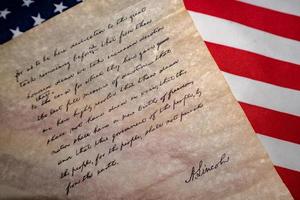 for us to be here dedicated to the great
task remaining before us that from these
honored dead we take increased devotion
to that cause for which they here gave
the last full measure of devotion that
we here highly resolve that these dead
shall not have died in vain that this
nation shall have a new birth of freedom
and that this government of the people, by
the people, for the people, shall not perish
from the earth.
A. Lincoln